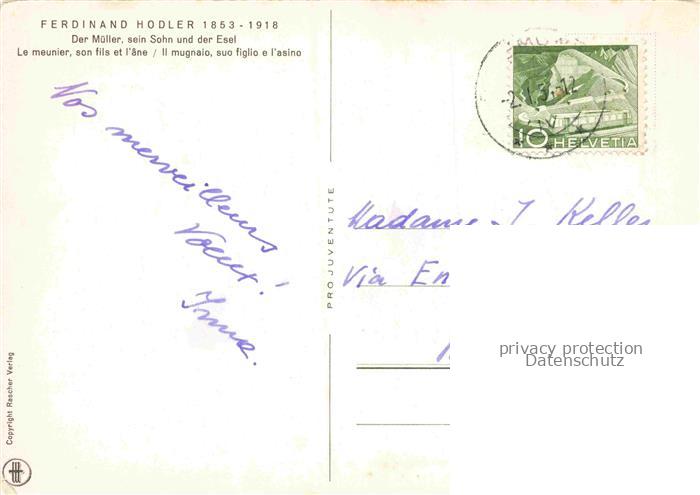 FERDINAND HODLER 1853-1918
Der Müller, sein Sohn und der Esel
Le meunier, son fils et l'âne / Il mugnaio, suo figlio e l'asino
Vos merveilleurs
Voeux!
Irma.
PRO JUVENTUTE
10 HELVETIA
Madame J. Keller
Via En
privacy protection
Datenschutz
Copyright Rascher Verlag